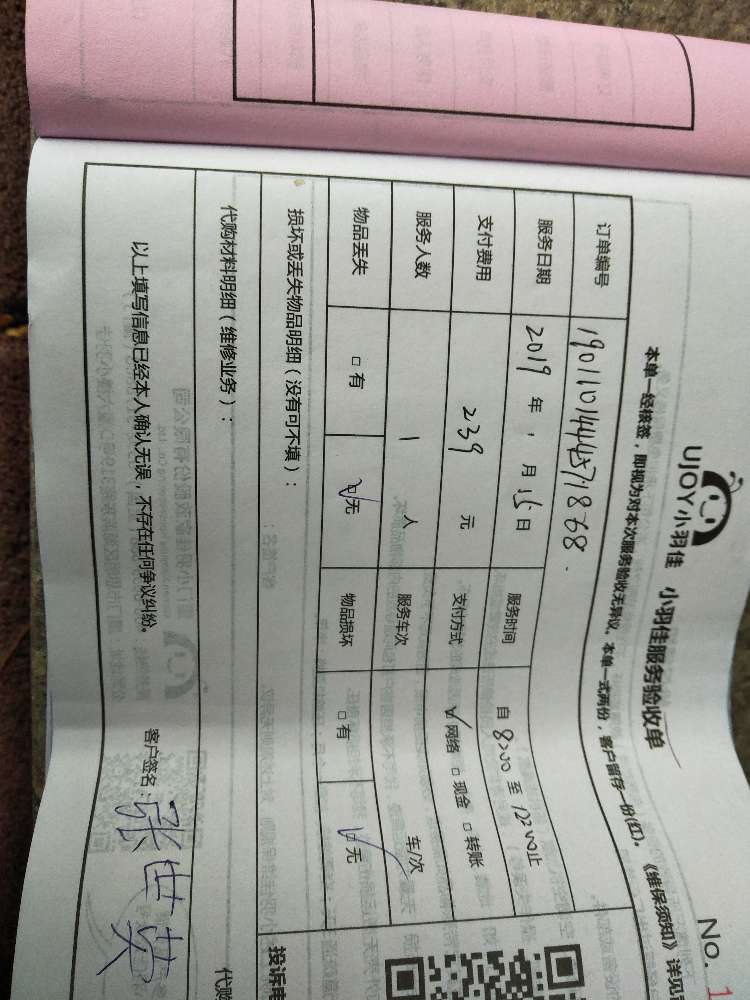 No. 1
UJOY小羽佳 小羽佳服务验收单
本单一经核签，即视为对本次服务验收无异议。本单一式两份，客户留存一份(红)。《维保须知》详见
订单编号
服务日期 2019 年 1 月 15 日 服务时间 自 8:00 至 12:00止
支付费用 239 元 支付方式 ☑网络 □现金 □转账
服务人数 1 人 服务车次 车/次
物品丢失 □有 ☑无 物品损坏 □有 ☑无
损坏或丢失物品明细（没有可不填）： 投诉电
代购材料明细（维修业务）： 代购
以上填写信息已经本人确认无误，不存在任何争议纠纷。 客户签名：张世英